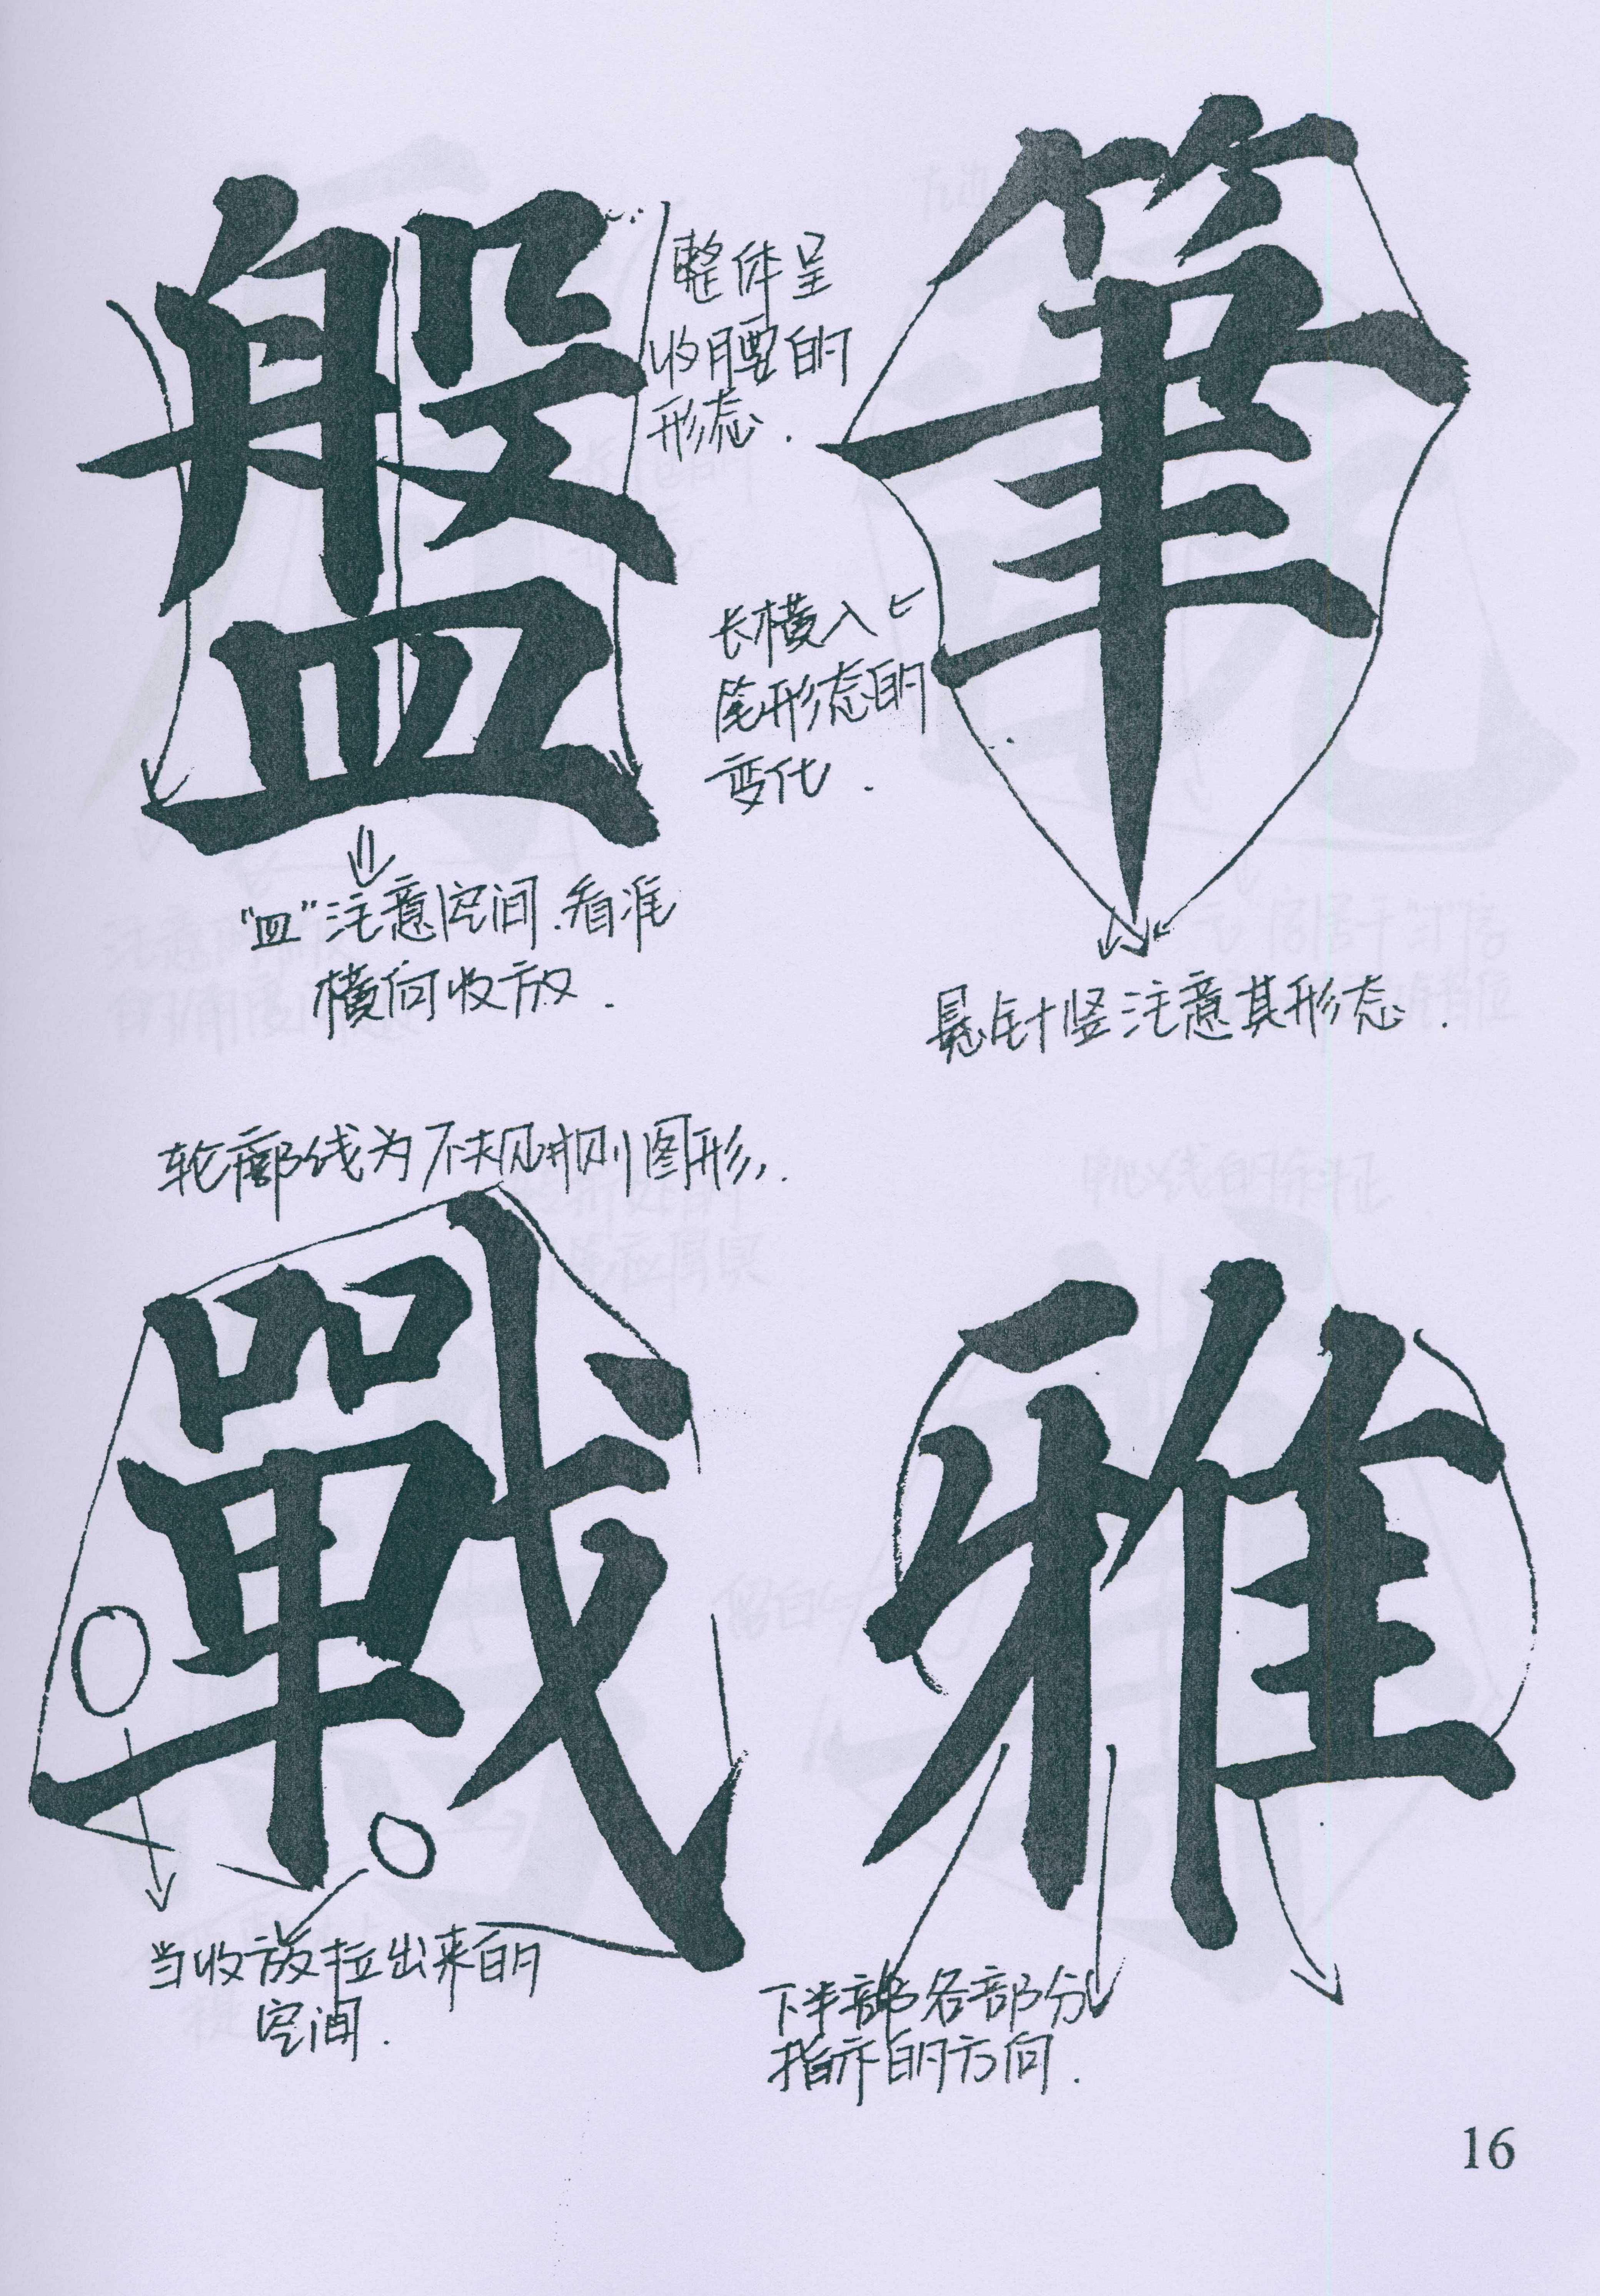 盤
整体呈
收腰的
形态.
"皿"注意空间.看准
横向收放.
筆
长横入
笔形态的
变化.
悬针竖注意其形态.
轮廓线为不规则图形.
戰
当收放拉出来的
空间.
雅
下半部各部分
指示的方向.
16